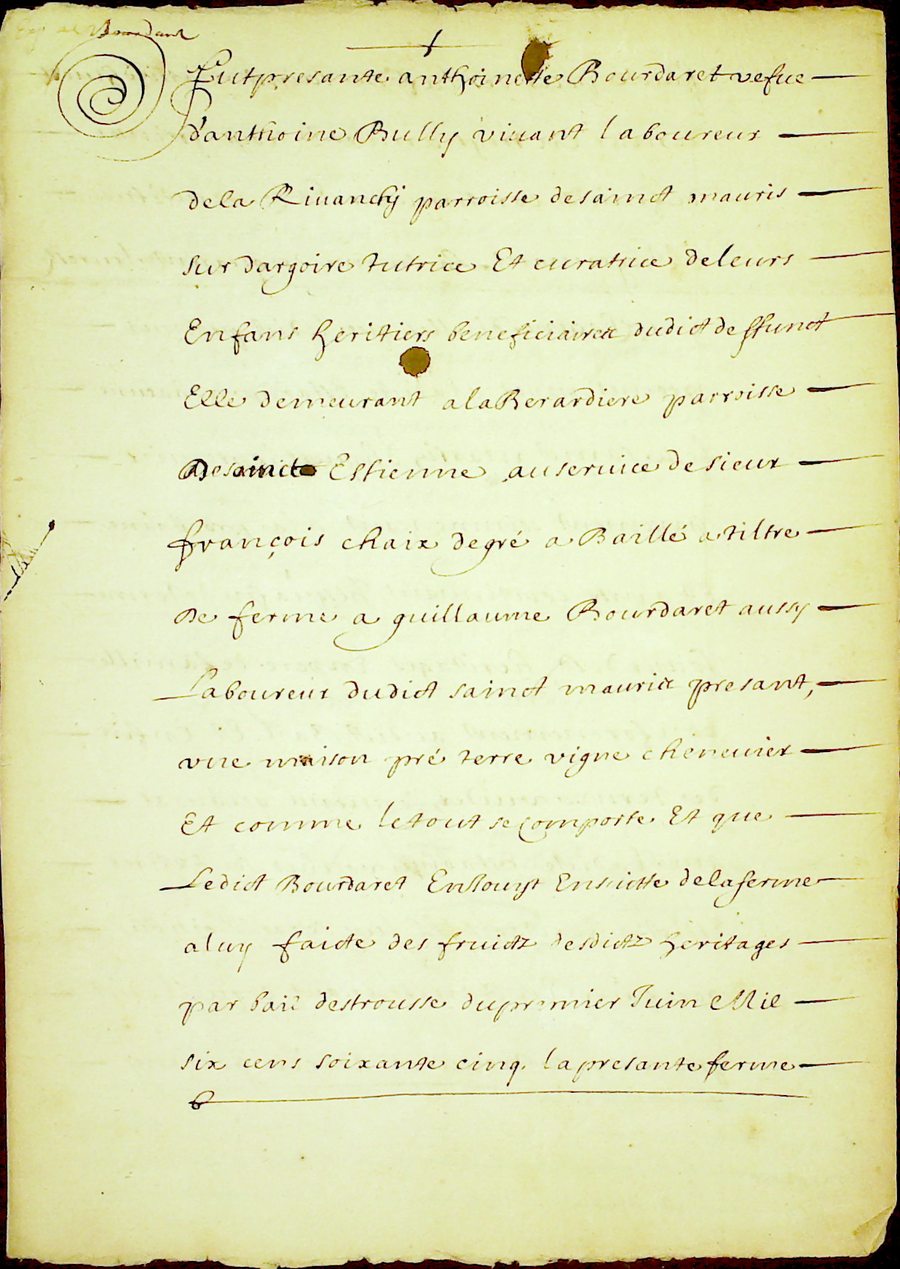 Bourdaret
Fut presante anthoinette Bourdaret vefue
d'anthoine Bully viuant laboureur
de la Riuanchÿ parroisse de sainct mauris
sur dargoire tutrice Et curatrice de leurs
Enfans heritiers beneficiaires dudict deffunct
Elle demeurant a la Berardiere parroisse
de sainct Estienne au seruice de sieur
françois chaix de gré a Baillé a tiltre
de ferme a guillaume Bourdaret aussy
Laboureur dudict sainct maurice presant,
vne maison pré terre vigne cheneuier
Et comme le tout se comporte Et que
Ledict Bourdaret En Jouyt En suitte de la ferme
a luy faicte des fruictz desdictz heritages
par bail destrousse du premier Juin Mil
six cens soixante cinq. la presante ferme